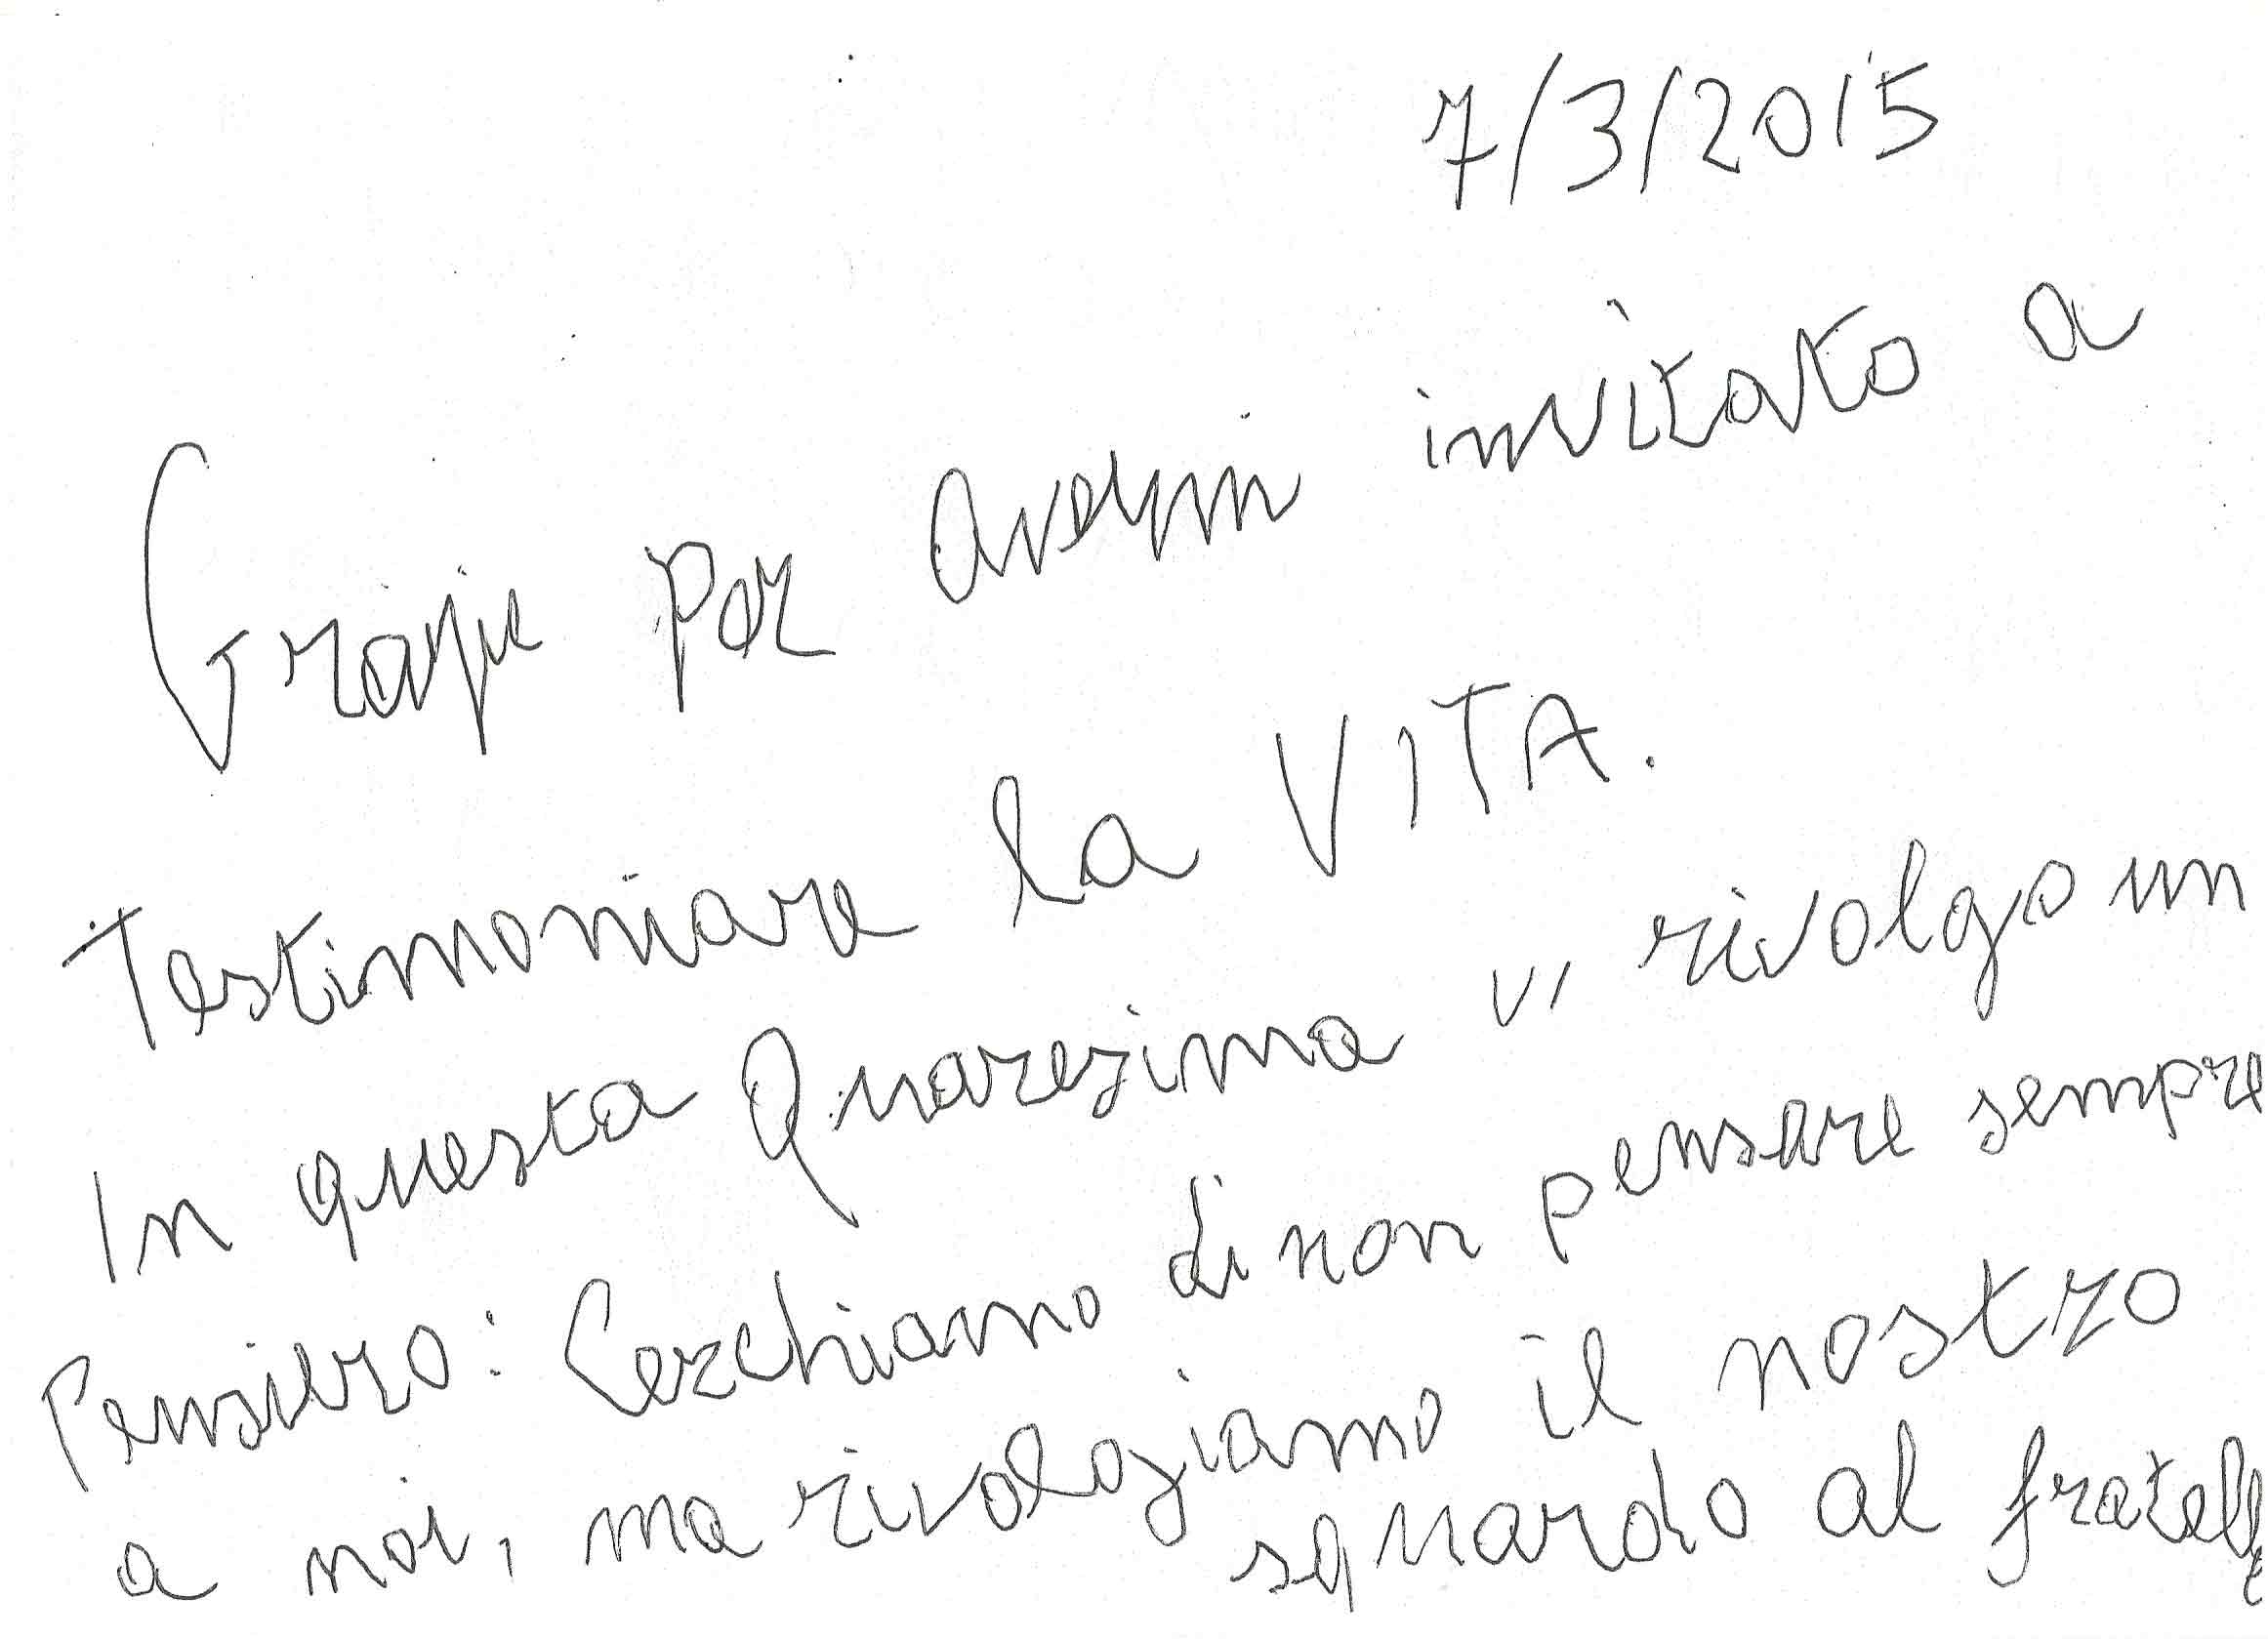 7/3/2015
Grazie per avermi invitato a
Testimoniare la VITA.
In questa Quaresima vi rivolgo un
Pensiero: Cerchiamo di non pensare sempre
a noi, ma rivolgiamo il nostro
sguardo al